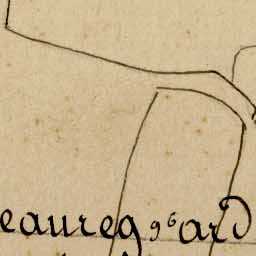 eaureg 96 ard